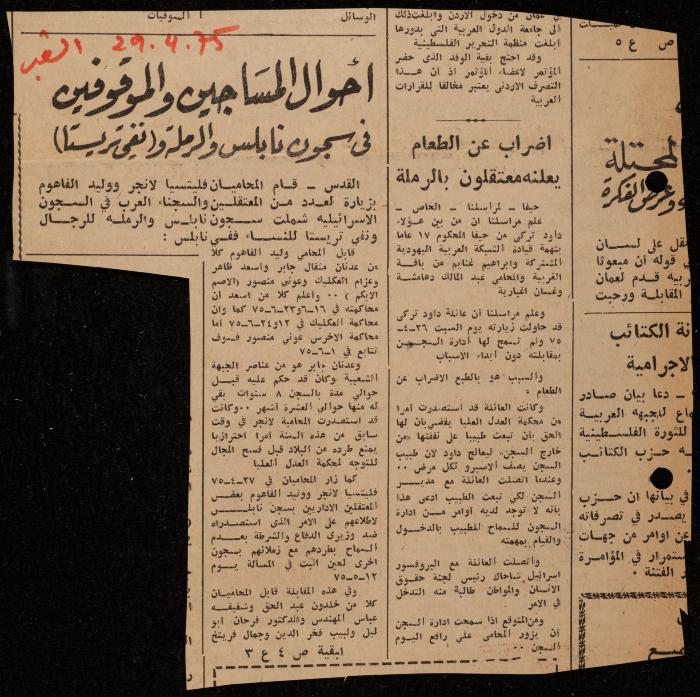 الوسائل
السوفيات
الشعب 29.4.75
أحوال المساجين والموقوفين
في سجون نابلس والرملة و(نفي تريستا)
القدس ـ قام المحاميان فليتسيا لانجر ووليد الفاهوم
بزيارة لعدد من المعتقلين والسجناء العرب في السجون
الاسرائيليه شملت سجون نابلس والرمله للرجال
ونفي تريستا للنساء ففي نابلس :
قابل المحامي وليد الفاهوم كلا
من عدنان مثقال جابر واسعد ظاهر
وعزام العكليك وعوني منصور (الاصم
الابكم ) ٠٠ واعلم كلا من اسعد ان
محاكمته في ١٦–٦ و٢٣–٦–٧٥ كما وان
محاكمة العكليك في ١٢ و٢٤–٦–٧٥ أما
محاكمة الاخرس عوني منصور فسوف
تتابع في ١–٦–٧٥
وعدنان جابر هو من عناصر الجبهة
الشعبية وكان قد حكم عليه قبل
حوالي مدة بالسجن ٨ سنوات بقي
له منها حوالي العشرة اشهر ٠٠ وكانت
قد استصدرت المحامية لانجر في وقت
سابق من هذه السنة أمرا احترازيا
يمنع طرده من البلاد قبل فسح المجال
للتوجه لمحكمة العدل العليا
كما زار المحاميان في ٢٧–٤–٧٥
فليتسيا لانجر ووليد الفاهوم بعض
المعتقلين الاداريين بسجن نابلس
لاطلاعهم على الامر الذى استصدراه
ضد وزيرى الدفاع والشرطة بعدم
السماح بطردهم مع زملائهم بسجون
اخرى لحين البت في المسألة يوم
١٢–٥–٧٥
وفي هذه المقابلة قابل المحاميان
كلا من خلدون عبد الحق وشقيقه
عباس المهندس والدكتور فرحان أبو
ليل ولبيب فخر الدين وجمال فريتخ
البقية ص ٤ ع ٣
في عمان من دخول الاردن وابلغت ذلك
الى جامعة الدول العربية التي بدورها
ابلغت منظمة التحرير الفلسطينية
وقد احتج بقية الوفد الذى حضر
المؤتمر لاعضاء المؤتمر اذ ان هذا
التصرف الاردني يعتبر مخالفا للقرارات
العربية
اضراب عن الطعام
يعلنه معتقلون بالرملة
حيفا ـ لمراسلنا ـ الخاص ـ
علم مراسلنا ان من بين هؤلاء
داود تركى من حيفا المحكوم ١٧ عاما
بتهمة قيادة الشبكة العربية اليهودية
المشتركة وابراهيم غنايم من باقة
الغربية والمحامي عبد المالك دهامشة
وغسان اغبارية
وعلم مراسلنا ان عائلة داود تركى
قد حاولت زيارته يوم السبت ٢٦–٤–
٧٥ ولم تسمح لها أدارة السجن
بمقابلته دون أبداء الاسباب
والسبب هو بالطبع الاضراب عن
الطعام ٠
وكانت العائلة قد استصدرت أمرا
من محكمة العدل العليا يقضي بان لها
الحق بأن تبعث طبيبا على نفقتها «من
خارج السجن» ليعالج داود لان طبيب
السجن يصف الاسبرو لكل مرض ٠٠
وعندما اتصلت العائلة مع مدير
السجن لكي تبعث الطبيب ادعى هذا
بأنه لا توجد لديه أوامر من ادارة
السجون للسماح للطبيب بالدخول
والقيام بمهمته
واتصلت العائلة مع البروفسور
اسرائيل شاحاك رئيس لجنة حقوق
الانسان والمواطن طالبة منه التدخل
في الامر
ومن المتوقع اذا سمحت ادارة السجن
أن يزور المحامي على رافع اليوم
السجن ٠٠
ص ع ٥
المحتلة
وعرض الفكرة
نقل على لسان
في قوله ان مبعوثا
عربيه قدم لعمان
المقابلة ورحبت
نة الكتائب
الاجرامية
ـ دعا بيان صادر
ماع للجبهه العربية
للثورة الفلسطينية
ـه حزب الكتائب
في بيانها ان حزب
يصدر في تصرفاته
عن اوامر من جهات
ستمرار في المؤامرة
الفتنة ٠